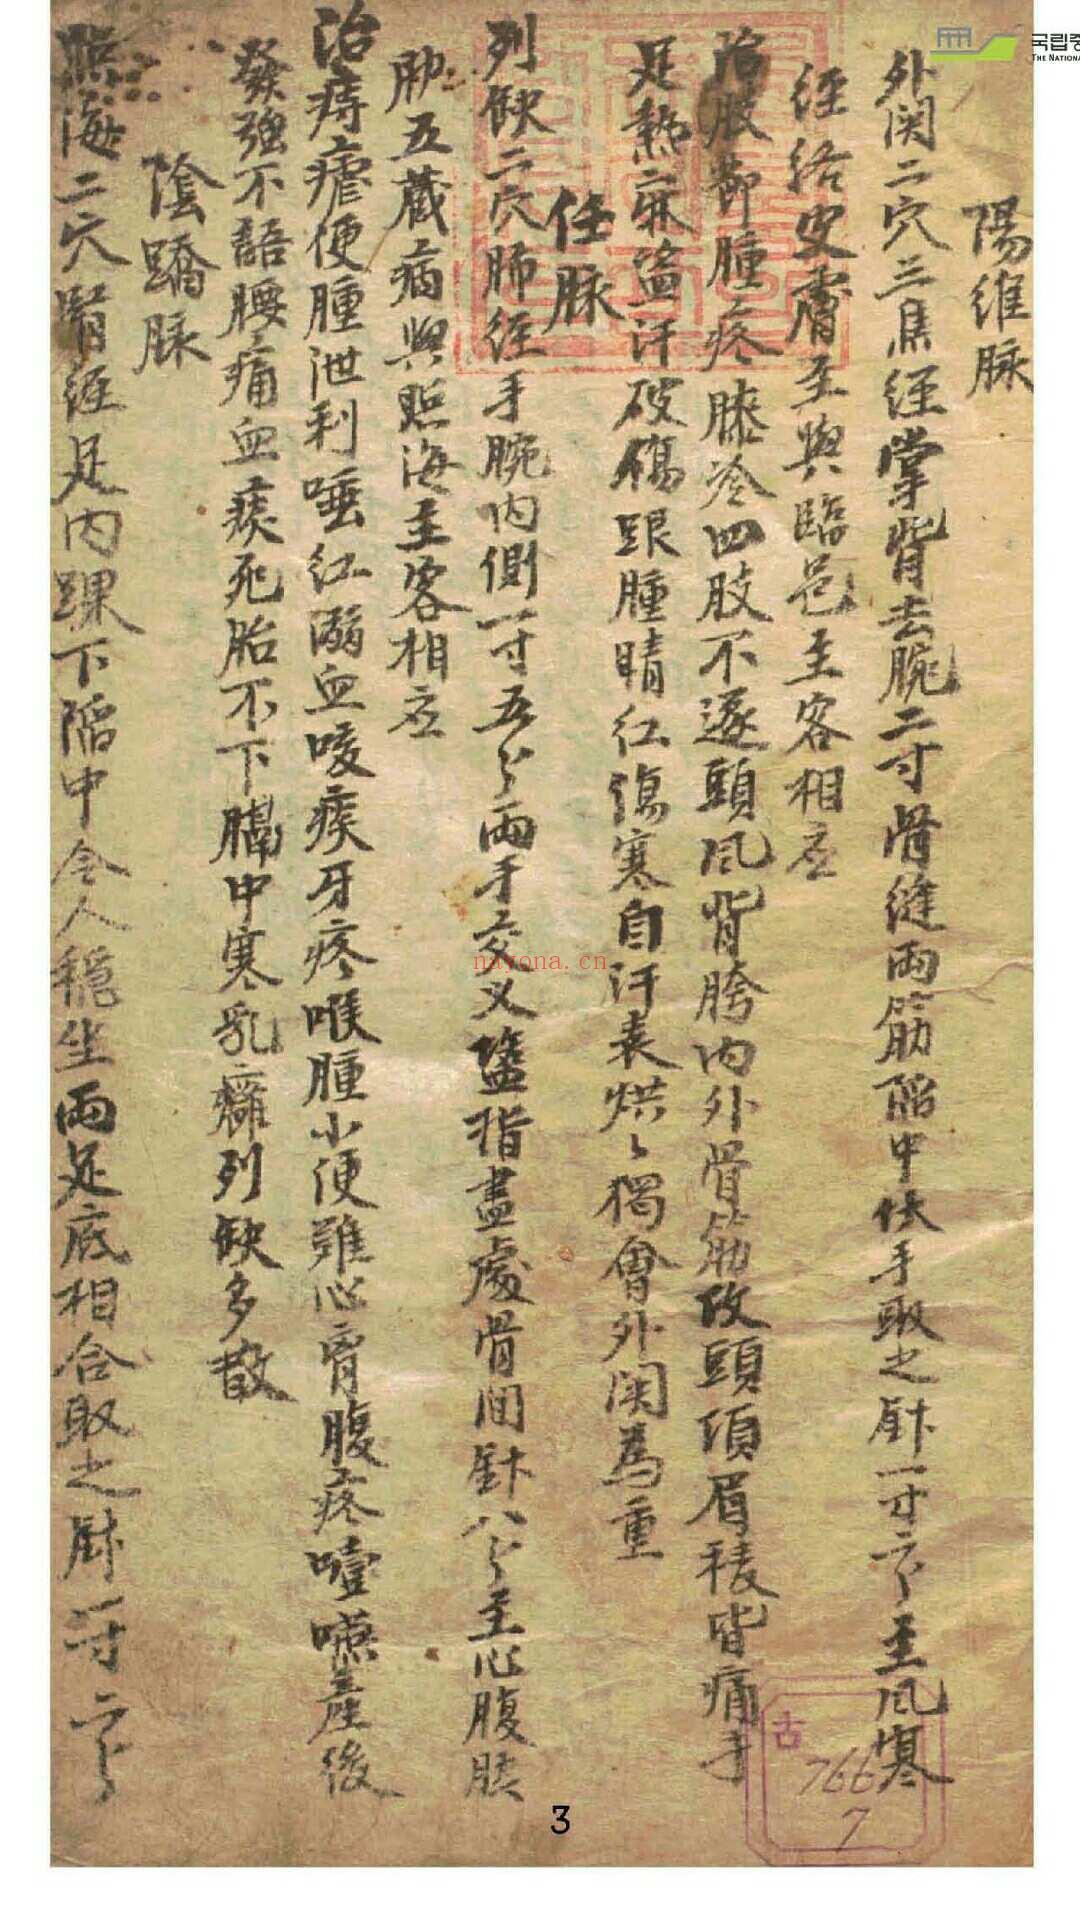 陽維脉
外関二穴三焦經掌背去腕二寸骨縫両筋陥中伏手取之針一寸二分主風寒
經絡皮膚主與臨邑主客相应
治肢節腫疼膝冷四肢不遂頭風背胯内外骨筋攻頭須眉稜皆痛手
足熱麻盜汗破傷跟腫睛红傷寒自汗表烘〻獨會外関為重
任脉
列缺二穴肺經手腕内側一寸五分兩手交乂盬指盡處骨间針八分主心腹肤
肋五蔵病與照海主客相应
治痔瘧便腫泄利唾红溺血咳痰牙疼喉腫小便难心胷腹疼噎嚥産後
發強不語腰痛血痰死胎不下膈中寒乳癰列缺多散
陰蹻脉
照海二穴腎經足内踝下陥中令人穏坐両足底相合取之針一寸二分
古
766
7
3
국립중
THE NATIONA
nayona.cn